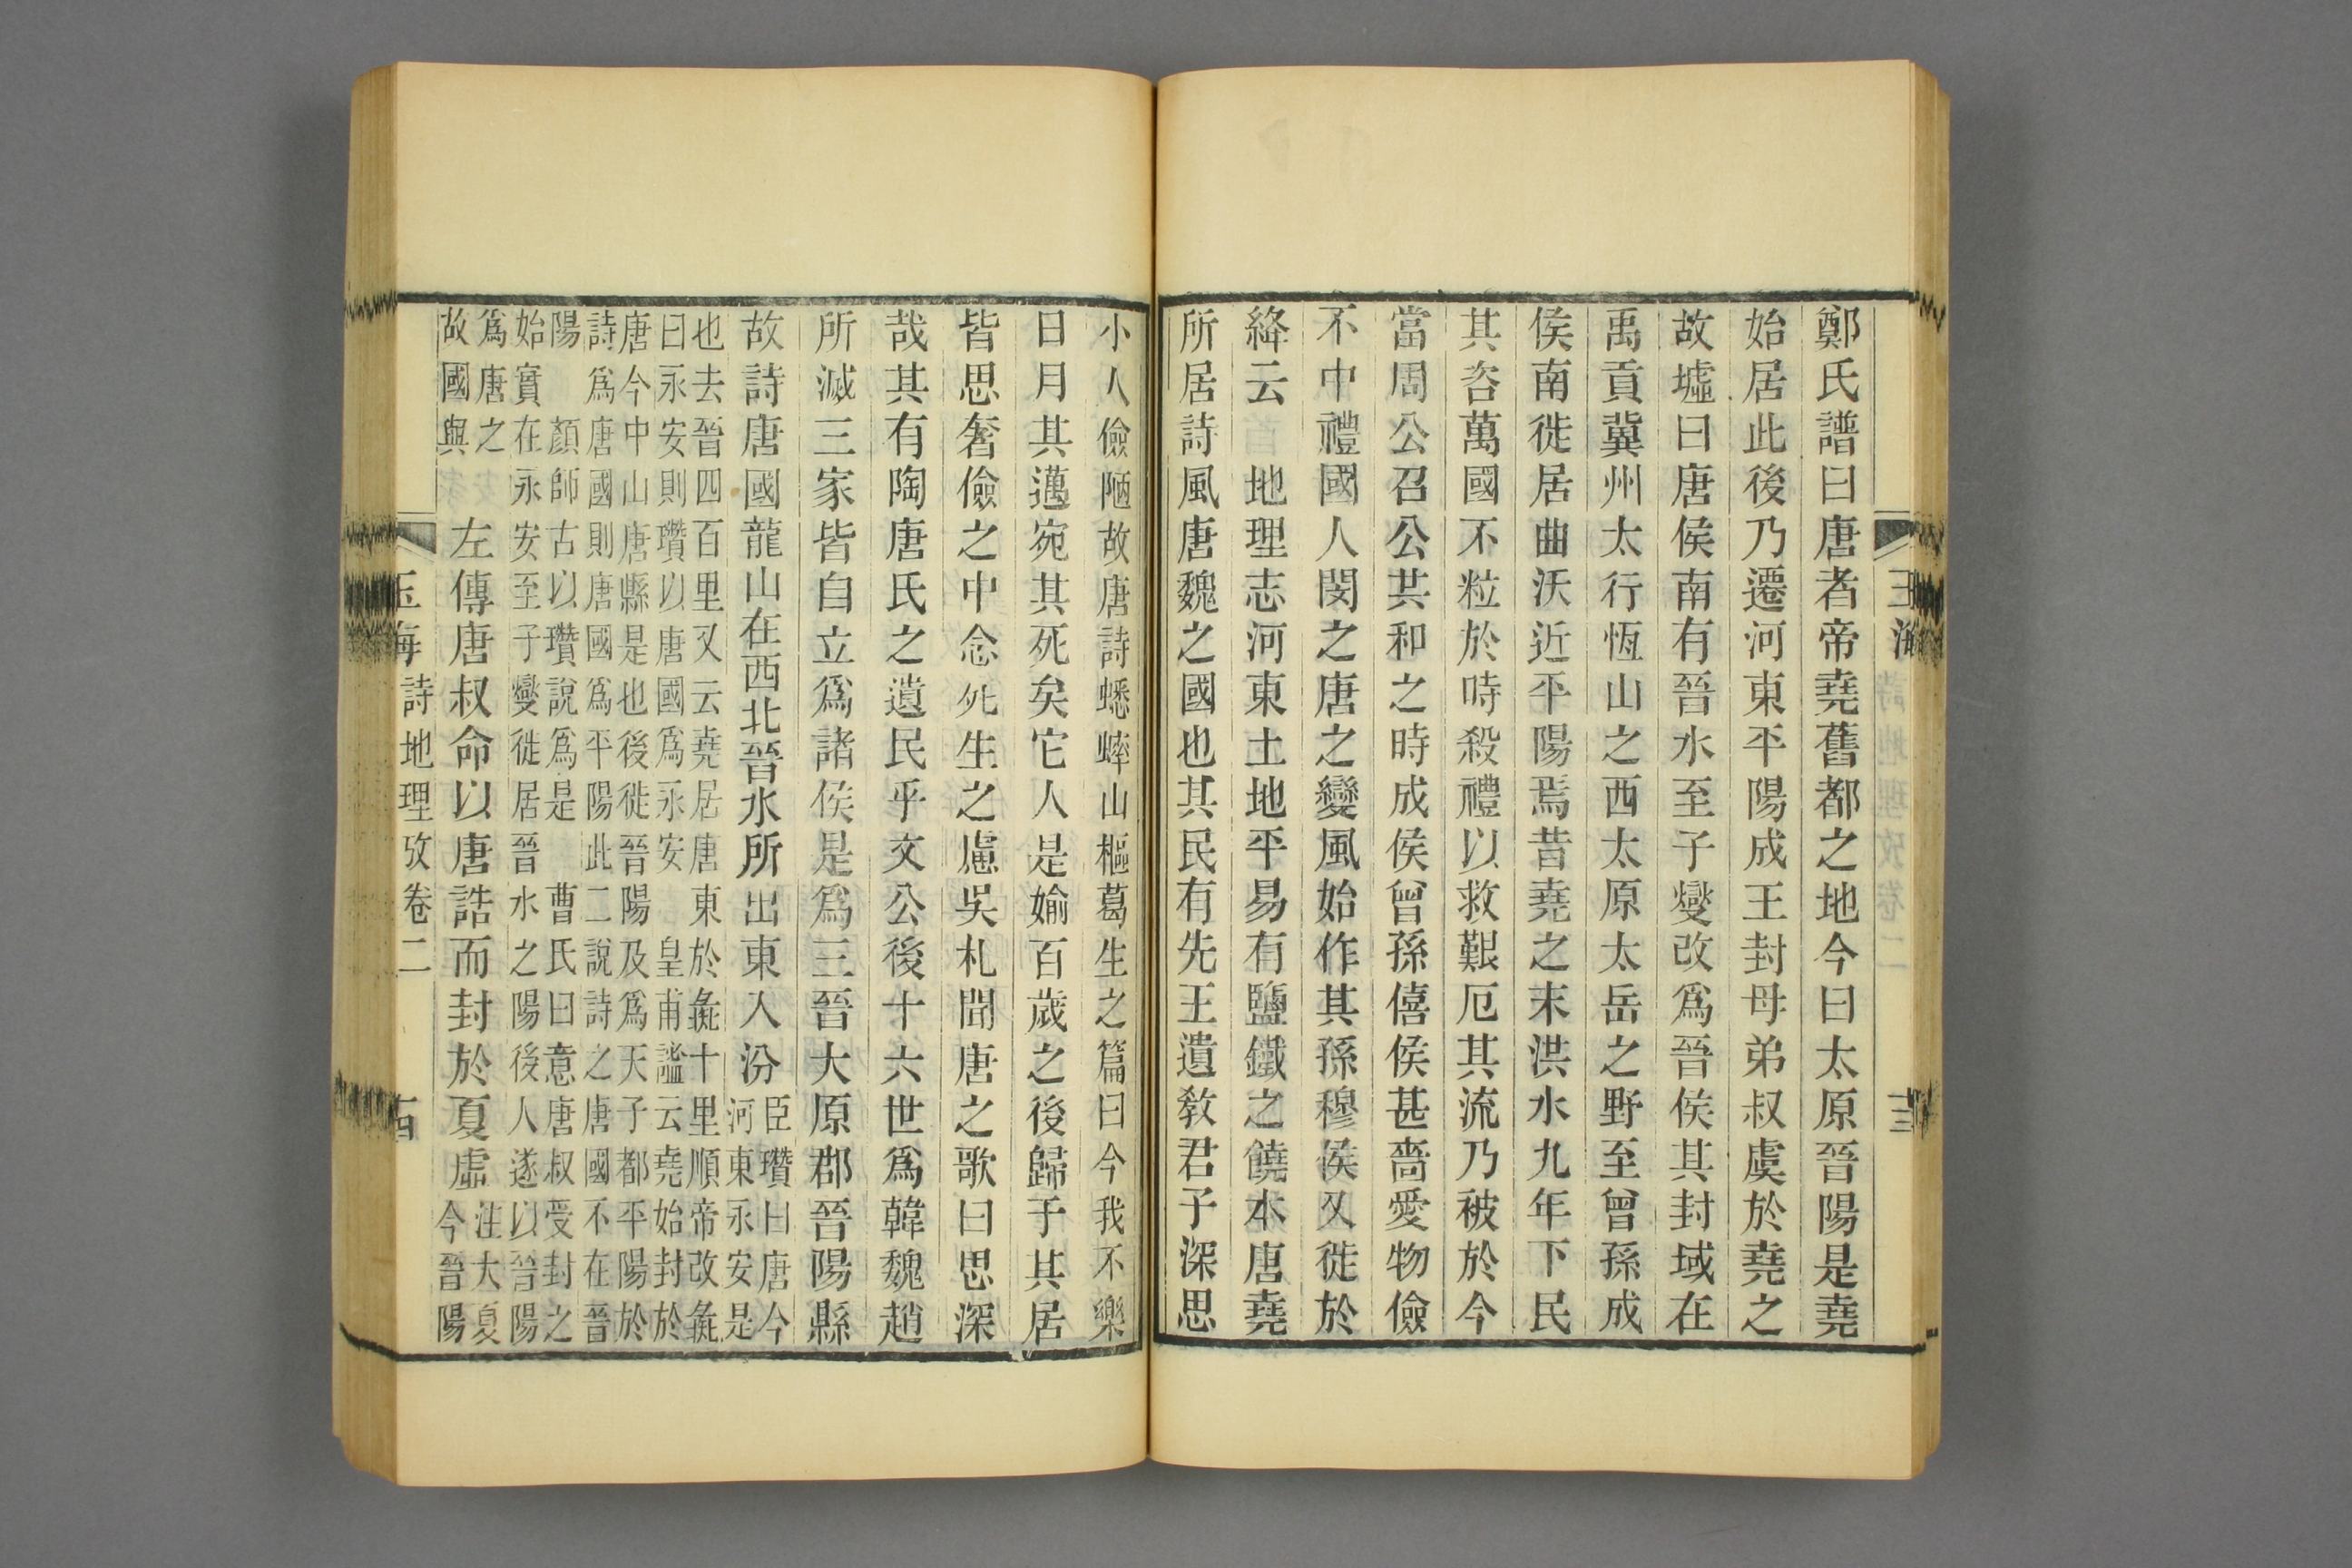 玉海
十三
鄭氏譜曰唐者帝堯舊都之地今曰太原晉陽是堯
始居此後乃遷河東平陽成王封母弟叔虞於堯之
故墟曰唐侯南有晉水至子燮改爲晉侯其封域在
禹貢冀州太行恆山之西太原太岳之野至曾孫成
侯南徙居曲沃近平陽焉昔堯之末洪水九年下民
其咨萬國不粒於時殺禮以救艱厄其流乃被於今
當周公召公共和之時成侯曾孫僖侯甚嗇愛物儉
不中禮國人閔之唐之變風始作其孫穆侯又徙於
絳云　地理志河東土地平易有鹽鐵之饒本唐堯
所居詩風唐魏之國也其民有先王遺敎君子深思
小人儉陋故唐詩蟋蟀山樞葛生之篇曰今我不樂
日月其邁宛其死矣它人是媮百歲之後歸于其居
皆思奢儉之中念死生之慮吳札聞唐之歌曰思深
哉其有陶唐氏之遺民乎文公後十六世爲韓魏趙
所滅三家皆自立爲諸侯是爲三晉大原郡晉陽縣
故詩唐國龍山在西北晉水所出東入汾臣瓚曰唐今
河東永安是
也去晉四百里又云堯居唐東於彘十里順帝改彘
曰永安則瓚以唐國爲永安　皇甫謐云堯始封於
唐今中山唐縣是也後徙晉陽及爲天子都平陽於
詩爲唐國則唐國爲平陽此二說詩之唐國不在晉
陽　顏師古以瓚說爲是　曹氏曰意唐叔受封之
始實在永安至子燮徙居晉水之陽後人遂以晉陽
爲唐之
故國與　左傳唐叔命以唐誥而封於夏虛注大夏
今晉陽
玉海　詩地理攷卷二
古